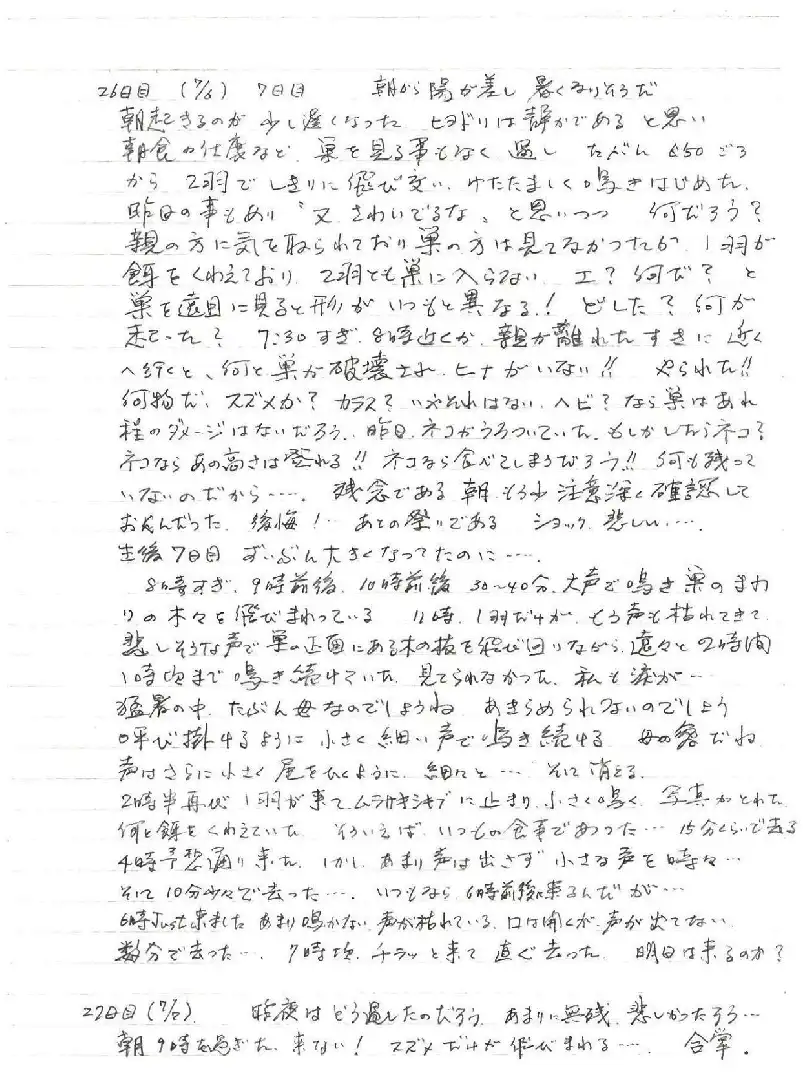 26日目 (7/6) 7日目 朝から陽が差し 暑くなりそうだ
朝起きるのが 少し遅くなった ヒヨドリは静かである と思い
朝食の仕度など、巣を見る事もなく 過し たぶん 650ごろ
から 2羽で しきりに飛び交い、けたたましく鳴きはじめた、
昨日の事もあり 〝又、さわいでるな〟と思いつつ 何だろう?
親の方に気を取られており巣の方は見てなかったが、1羽が
餌をくわえており、2羽とも巣に入らない エ?何だ? と
巣を遠目に見ると形が いつもと異なる! どした? 何か
起こった? 7:30すぎ、8時近くか、親が離れたすきに 近く
へ行くと、何と巣が破壊され、ヒナがいない!! やられた!!
何物だ、スズメか? カラス? いやそれはない、ヘビ? なら巣はあれ
程のダメージはないだろう、昨日、ネコがうろついていた、もしかしたらネコ?
ネコならあの高さは登れる!! ネコなら食べてしまうだろう!! 何も残って
いないのだから‥‥、残念である 朝、もう少し注意深く確認して
おくんだった、後悔!‥ あとの祭りである ショック、悲しい‥‥、
生後7日目 ずいぶん大きくなってたのに‥‥、
8時すぎ、9時前後、10時前後 30〜40分、大声で鳴き巣のまわ
りの木々を飛びまわっている 11時、1羽だけが、もう声も枯れてきて、
悲しそうな声で巣の正面にある木の枝を飛び回りながら、延々と2時間
1時頃まで鳴き続けていた、見てられなかった、私も涙が‥
猛暑の中、たぶん母なのでしょうね あきらめられないのでしょう
呼び掛けるように 小さく細い声で鳴き続ける 母の愛だね
声はさらに小さく 尾をひくように、細々と‥‥ そして消える、
2時半再び1羽が来て、ムラサキシキブに止まり、小さく鳴く、写真がとれた
何と餌をくわえていた そういえば、いつもの食事であった‥‥ 15分くらいで去る
4時予想通り来た、しかし、あまり声は出さず 小さな声を時々‥
そして10分少々で去った‥‥、いつもなら、6時前後に来るんだが‥‥
6時Just来ました あまり鳴かない、声が枯れている、口は開くが、声が出てない
数分で去った‥‥、7時頃、チラッと来て 直ぐ去った、明日は来るのか?
27日目(7/7) 昨夜は どう過したのだろう、あまりに無残、悲しかったろう‥‥
朝9時を過ぎた、来ない! スズメだけが飛びまわる‥‥、合掌.